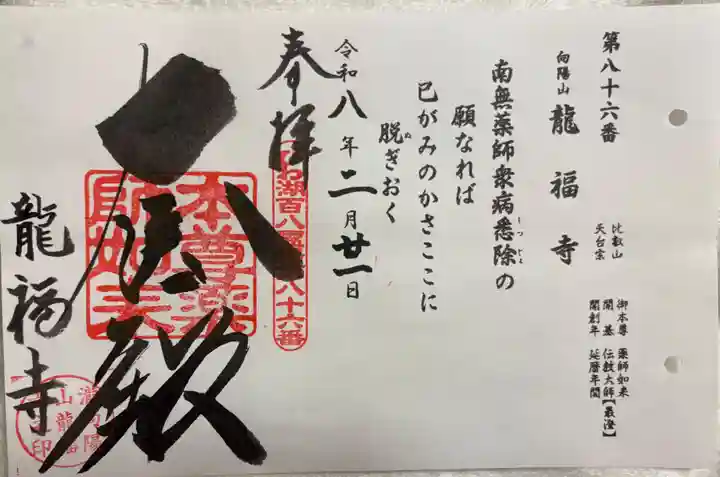 第八十六番
向陽山 龍福寺
比叡山
天台宗
御本尊 薬師如来
開基 伝教大師【最澄】
開創年 延暦年間
南無薬師衆病悉除の
しつじょ
願なれば
已がみのかさここに
脱ぎおく
ぬ
令和八年二月廿一日
奉拝
びわ湖百八霊場第八十六番
本尊薬師如来
医殿
龍福寺